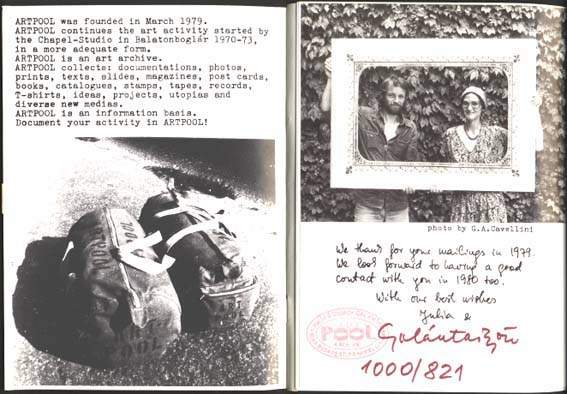 ARTPOOL was founded in March 1979.
ARTPOOL continues the art activity started by
the Chapel-Studio in Balatonboglár 1970-73,
in a more adequate form.
ARTPOOL is an art archive.
ARTPOOL collects: documentations, photos,
prints, texts, slides, magazines, post cards,
books, catalogues, stamps, tapes, records,
T-shirts, ideas, projects, utopias and
diverse new medias.
ARTPOOL is an information basis.
Document your activity in ARTPOOL!
POOL
photo by G.A.Cavellini
We thank for your mailings in 1979.
We look forward to having a good
contact with you in 1980 too.
With our best wishes
Julia &
Galántai Gyöu
POOL
1000/821